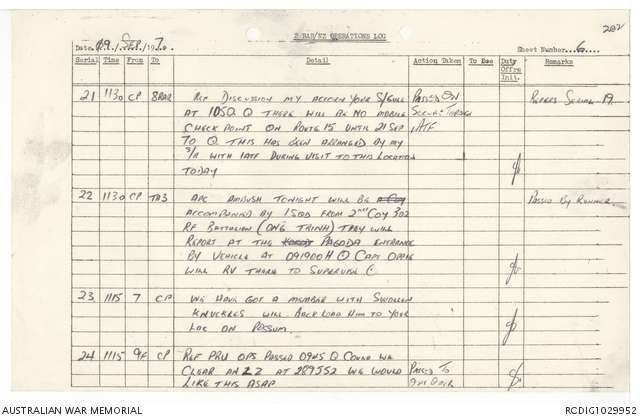 2 RAR/NZ OPERATIONS LOG
202
Date 09 Sep 1970.
Sheet Number 6
Serial Time From To Detail Action Taken To See Duty Offrs Init. Remarks
21 1130 CP 8RAR Ref Discussion my your S/Gull Passed On Refers Serial 19.
at 1050 Q There will be no mobile
check point on Route 15 until 21 Sep IATF
70 Q This has been arranged by my
3/1 with IATF during visit to this location
today
22 1130 CP TA3 APC Ambush tonight will be a Coy Passed by Runner.
accompanied by 15 from 2nd Coy 302
RF Battalion (Ong Trinh) They will
report at the Pagoda entrance
by vehicle at 091900H Q Capt
will RV there to supervise C.
23 1115 7 CP We have got a member with swollen
knuckles. Will back load him to your
loc on Possum.
24 1115 9F CP Ref PRU ops passed 0945 Q Could we
clear an LZ at 289552 We would Passed to
like this ASAP
AUSTRALIAN WAR MEMORIAL
RCDIG1029952